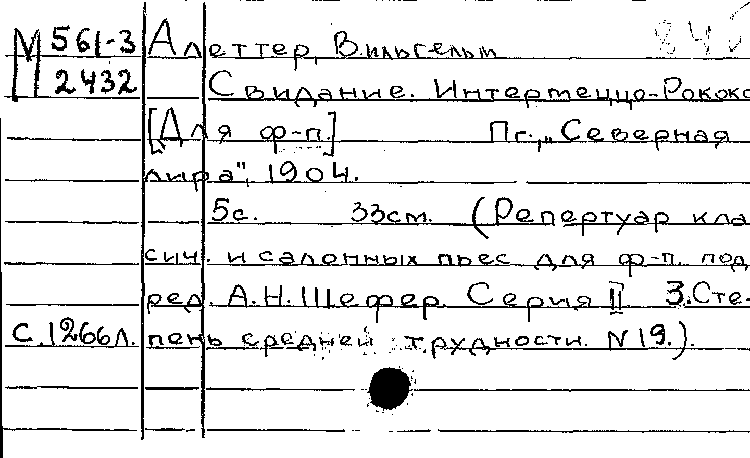 М 561-3 Алеттер, Вильгельм 845
2432 Свидание. Интермеццо-Рококо
[Для ф-п.] Пг., „Северная
лира", 1904.
5с. 33см. (Репертуар клас
сич. и салонных пьес для ф-п. под
ред. А.Н. Шефер. Серия II 3. Сте-
С.1266л. пень средней трудности. N 19.).